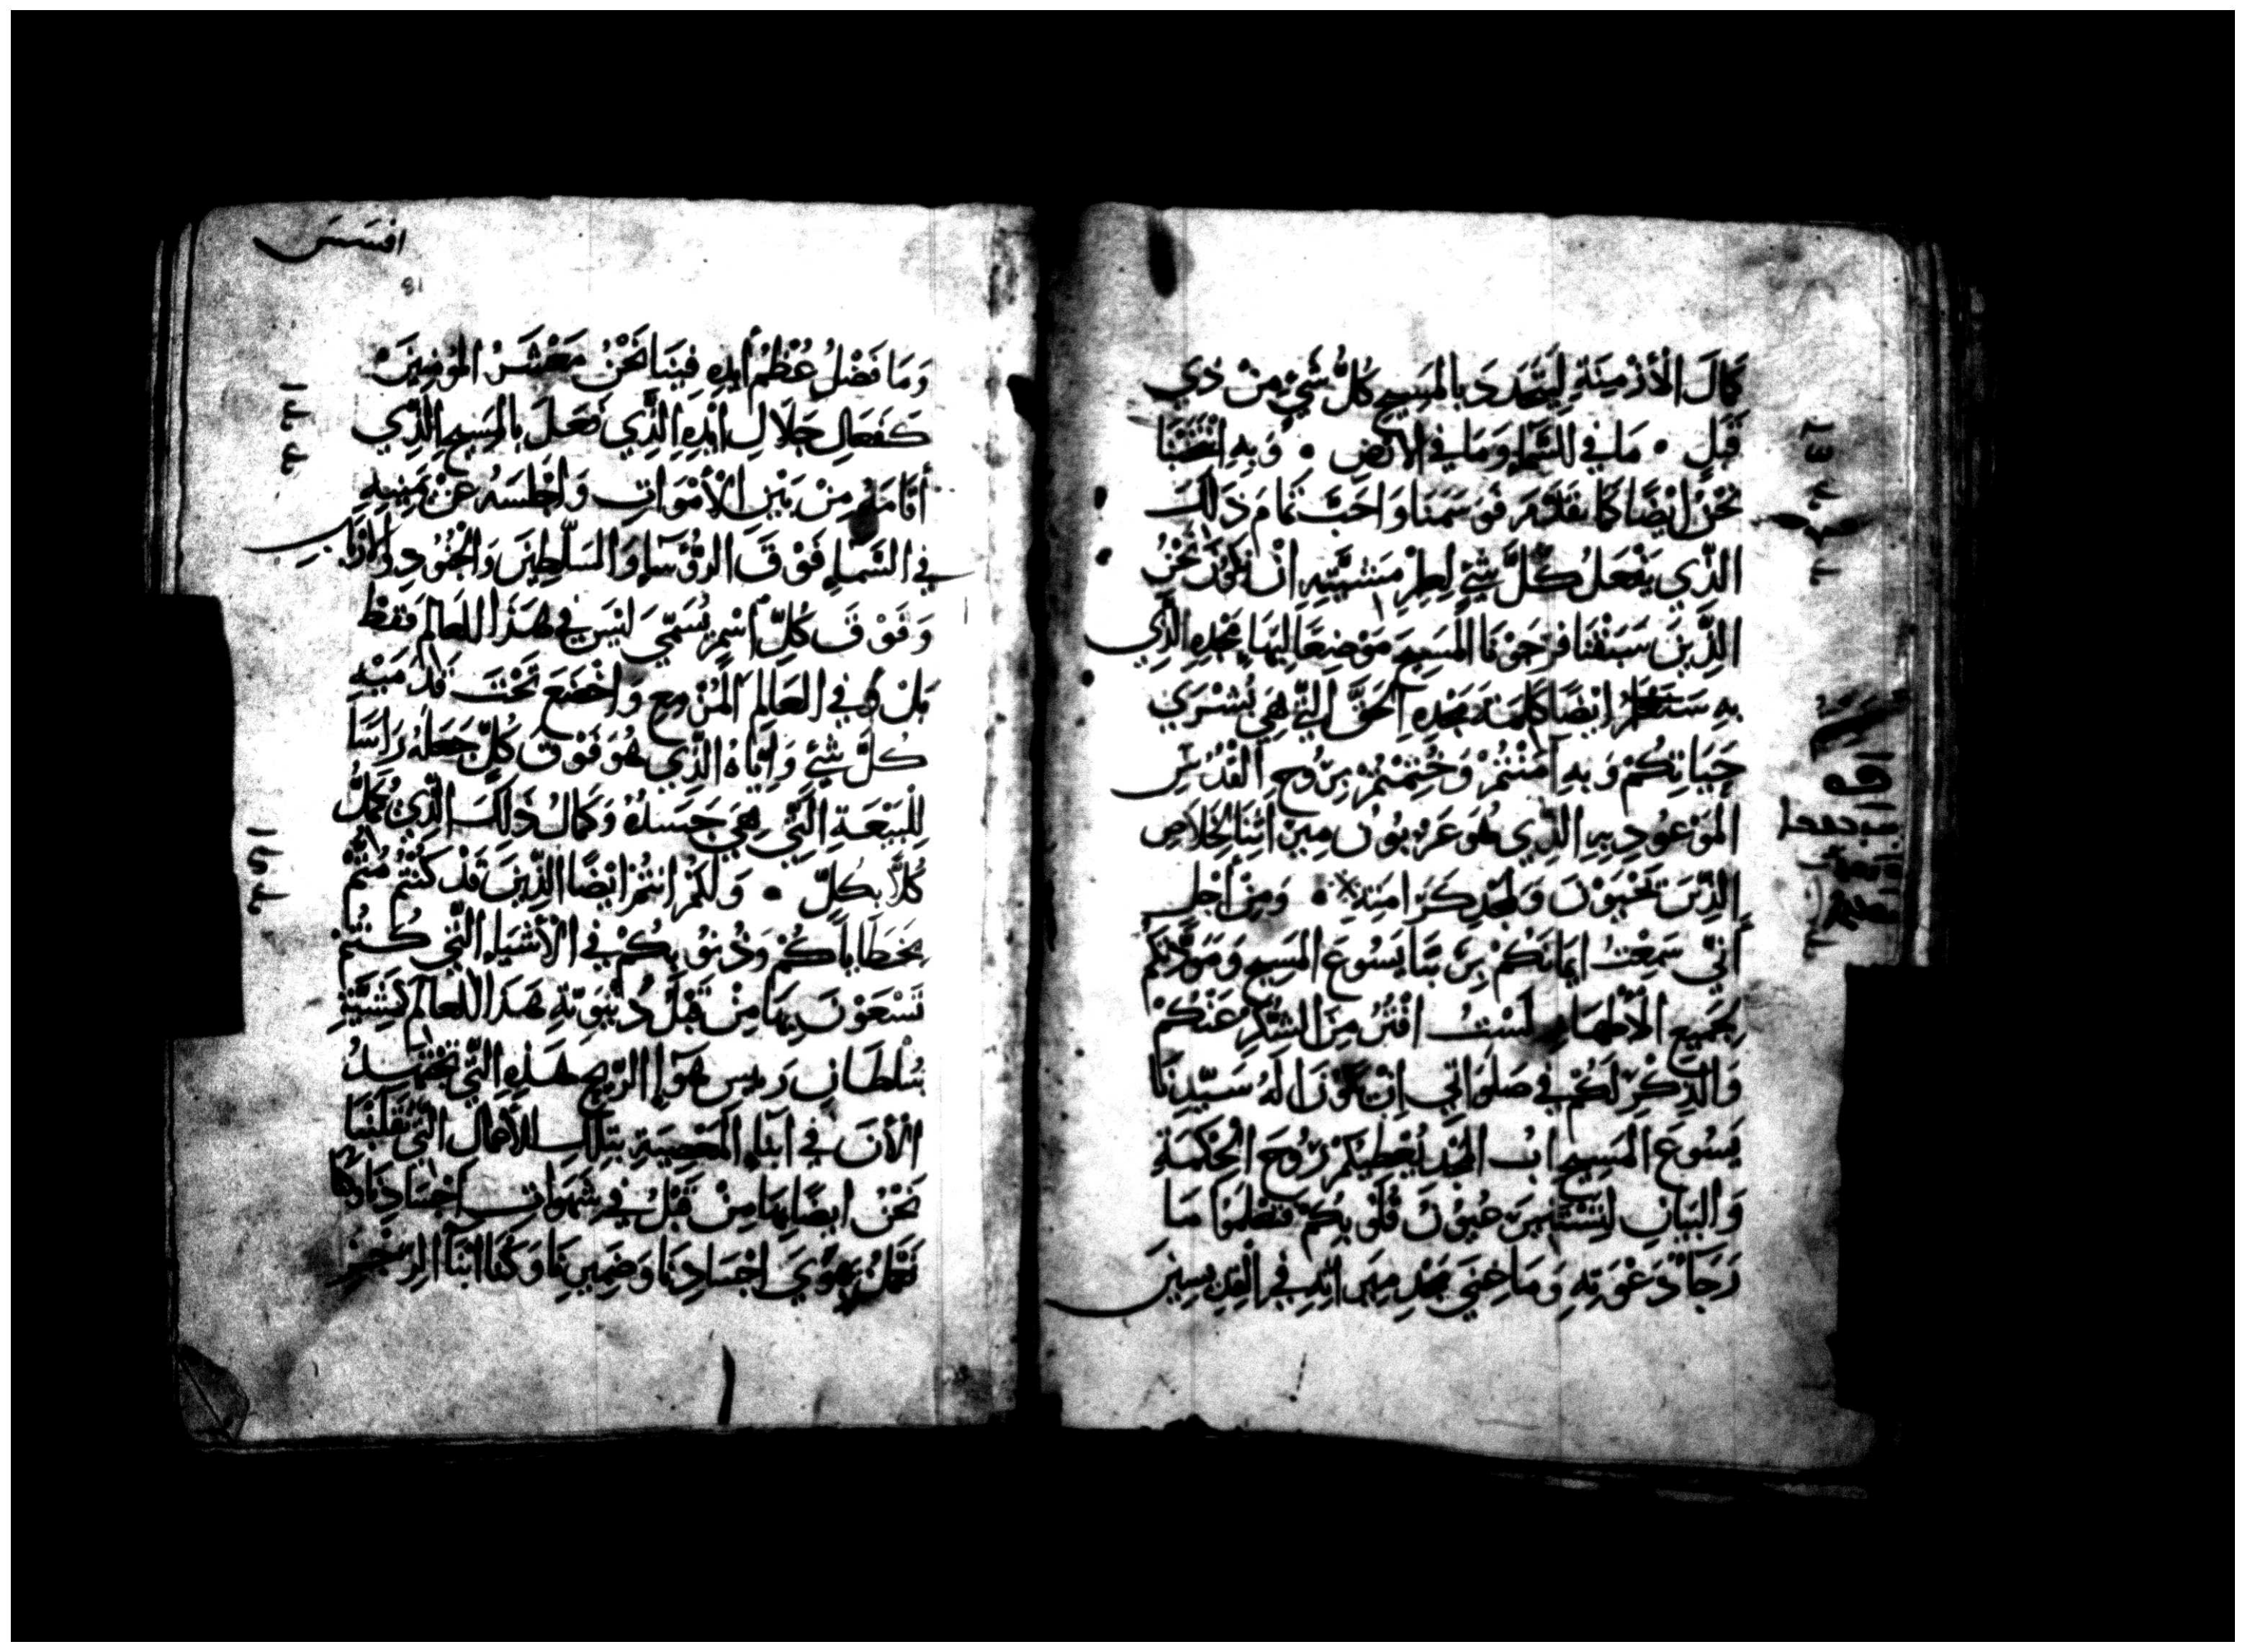 كَمَالَ الْأَزْمِنَةِ لِيَتَجَدَّدَ بِالمَسِيحِ كُلُّ شَيْءٍ مِنْ ذِي
قَبلِ • مَا فِي السَّمَاءِ وَمَا فِي الْأَرْضِ • وَبِهِ انْتَخَبَنَا
نَحْنُ ايْضًا كَمَا تَقَدَّمَ فَوَسَمَنَا وَاحَبَّ تَمَامَ ذَلِكَ
الَّذِي يَفْعَلُ كُلَّ شَيْءٍ مَشِيَّتِهِ انْ نَكُوْنَ نَحْنُ
الَّذِينَ سَبَقْنَا فَرَجَوْنَا الْمَسِيحِ مَوْضِعًا مَجْدِهِ الَّذِي
بِهِ ايْضًا كَلِمَةَ الحَقِّ الَّتِي هِيَ بُشْرَي
حَيَاتِكُمْ وَبِهِ آمَنْتُمْ وَخُتِمْتُمْ بِرُوحِ القُدُسِ
المَوْعُودِ بِهِ الَّذِي هُوَ عَرَبُونُ الخَلَاصِ
الَّذِينَ يَحْيَوْنَ كَرَامَتِهِ • وَمِنْ أَجْلِ
أَنِّي سَمِعْتُ ايْمَانَكُمْ بِرَبِّنَا يَسُوعَ المَسِيحِ وَمَوَدَّتَكُمْ
بِجَمِيعِ الْأَطْهَارِ لَسْتُ افْتُرُ مِنَ الشُّكْرِ عَنْكُمْ
وَالذِّكْرِ لَكُمْ فِي صَلَوَاتِي انْ يَكُوْنَ الَهُ سَيِّدِنَا
يَسُوعَ المَسِيحِ ابُ المَجْدِ يُعْطِيكُمْ رُوحَ الحِكْمَةِ
وَالبَيَانِ لِتَسْتَنِيرَ عُيُوْنُ قُلُوْبِكُمْ فَتَعْلَمُوا مَا
رَجَاءُ دَعْوَتِهِ وَمَا غِنَي مَجْدِ مِيرَاثِهِ فِي القِدِّيسِينَ
افسَسَ
وَمَا فَضْلُ عُظْمُ أَيْدِهِ فِينَا نَحْنُ مَعْشَرُ المُوْمِنِيْنَ
كَفَعَالِ جَلَالِ ايْدِهِ الَّذِي فَعَلَ بِالمَسِيحِ الَّذِي
أَقَامَهُ مِنْ بَيْنِ الْأَمْوَاتِ وَاجْلَسَهُ عَنْ يَمِينِهِ
فِي السَّمَاءِ فَوْقَ الرُّؤَسَاءِ وَالسَّلَّطِينَ وَالجُنُودِ وَالارْبَابِ
وَفَوْقَ كُلِّ اسْمٍ يُسَمَّي لَيْسَ فِي هَذَا العَالَمِ فَقَطْ
بَلْ وَفِي العَالَمِ المُزْمِعِ وَاخْضَعَ تَحْتَ قَدَمَيْهِ
كُلَّ شَيْءٍ وَايَّاهُ الَّذِي هُوَ فَوْقَ كُلٍّ جَعَلَهُ رَاسًا
لِلْبَيْعَةِ الَّتِي هِيَ جَسَدُهُ وَكَمَالُ ذَلِكَ الَّذِي يُكَمِّلُ
كُلَّا بِكُلٍّ • وَلَكُمْ انْتُمْ ايْضًا الَّذِينَ قَدْ كُنْتُمْ مُتُّمْ
بِخَطَايَاكُمْ وَذُنُوبِكُمْ فِي الْأَشْيَاءِ الَّتِي كُنْتُمْ
تَسْعَوْنَ بِهَا مِنْ قَبْلُ دُنْيَوِيَّةِ هَذَا العَالَمِ كَمَشِيَّةِ
سُلْطَانِ رَييسِ هَوَاءِ الرِّيحِ هَذِهِ الَّتِي تَجْتَهِدُ
الْأَنَ فِي ابْنَاءِ المَعْصِيَةِ بِتِلْكَ الْأَعْمَالِ الَّتِي تَقَلَّبْنَا
نَحْنُ ايضًا بِهَا مِنْ قَبْلُ فِي شَهَوَاتِ اجْسَادِنَا وَكُنَّا
نَعْمَلُ بِهَوَي اجْسَادِنَا وَضَمِيرِنَا وَكُنَّا ابْنَاءَ الرِّجْزِ